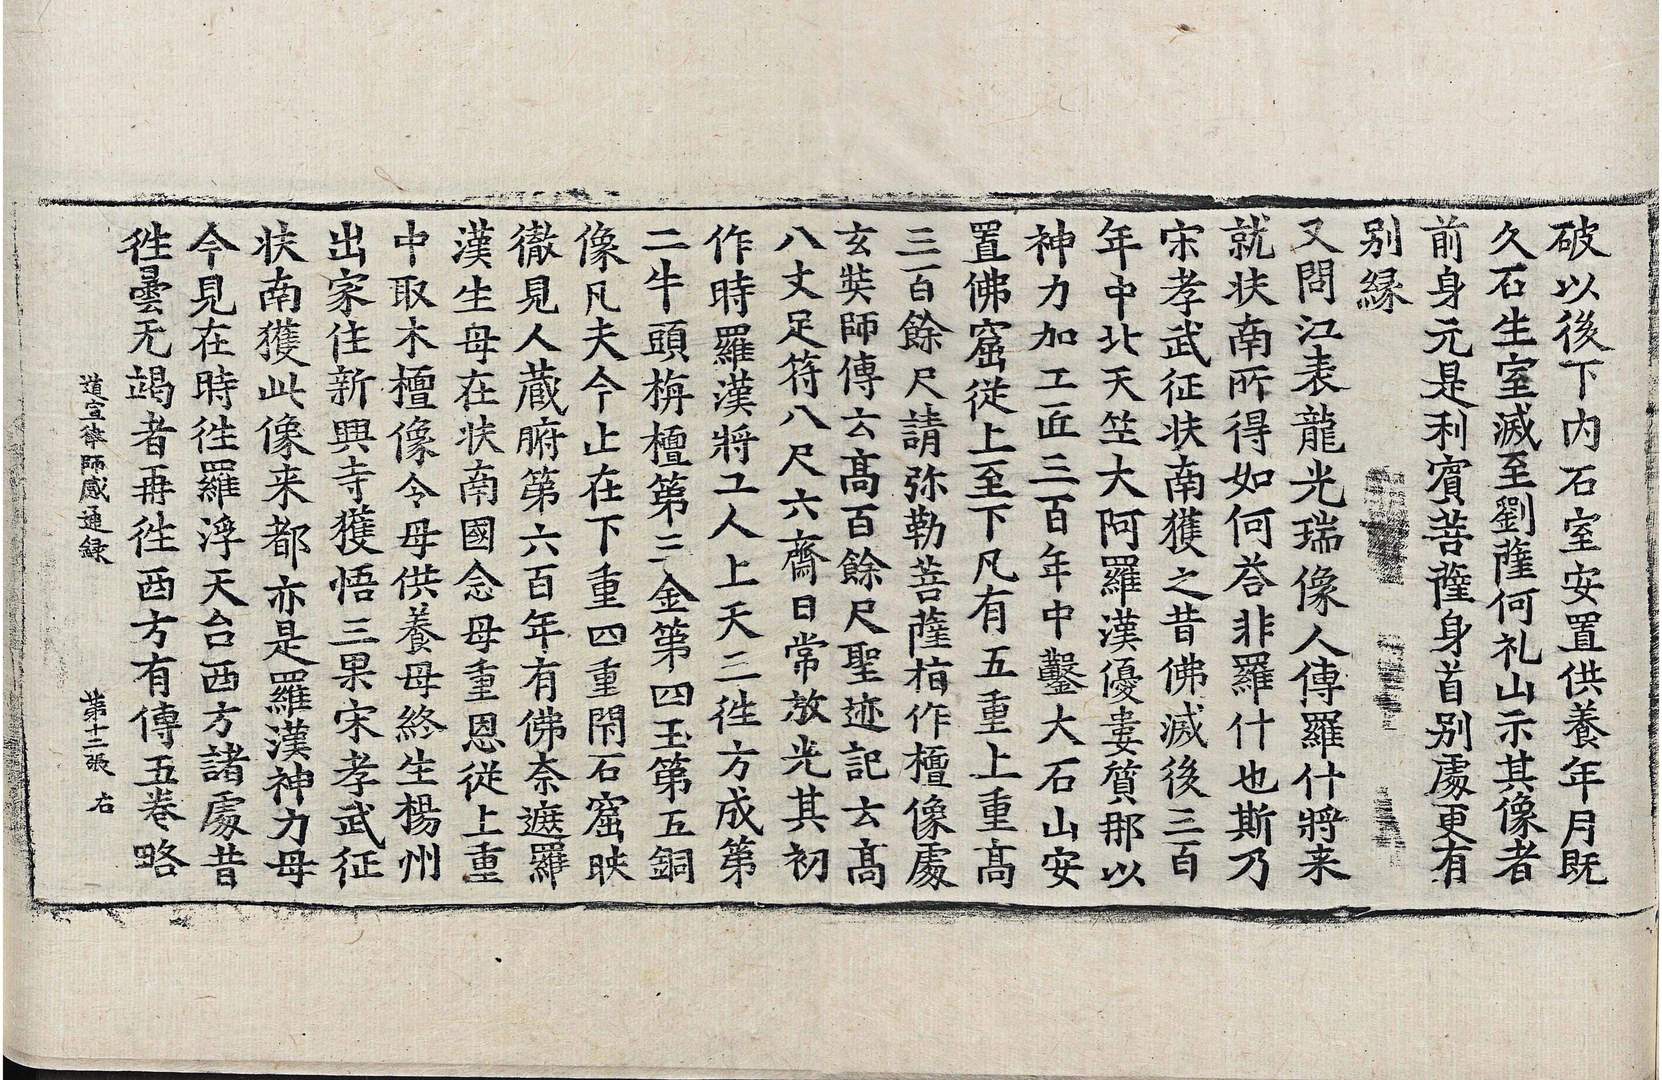 破以後下內石室安置供養年月旣
久石生室滅至劉薩何礼山示其像者
前身元是利賓菩薩身首别處更有
别縁
又問江表龍光瑞像人傳羅什將来
就扶南所得如何荅非羅什也斯乃
宋孝武征扶南獲之昔佛滅後三百
年中北天竺大阿羅漢優婁質那以
神力加工匠三百年中鑿大石山安
置佛窟從上至下凡有五重上重高
三百餘尺請弥勒菩薩栺作檀像處
玄奘師傳云髙百餘尺聖迹記云髙
八丈足符八尺六齋日常放光其初
作時羅漢將工人上天三徃方成第
二牛頭栴檀第三金第四玉第五銅
像凡夫今止在下重四重閇石窟映
徹見人藏腑第六百年有佛柰遮羅
漢生母在扶南國念母重恩従上重
中取木檀像令母供養母終生楊州
出家住新興寺獲悟三果宋孝武征
扶南獲此像来都亦是羅漢神力母
今見在時徃羅浮天台西方諸處昔
徃曇无竭者再徃西方有傳五卷略
道宣律師感通録 第十二張 右